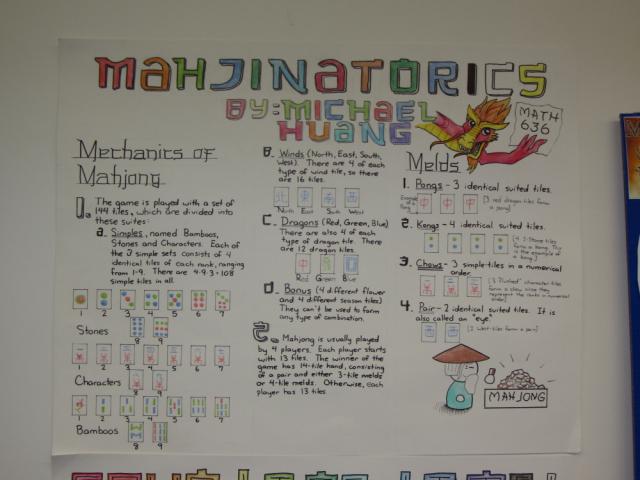 MAHJINATORICS
BY: MICHAEL
HUANG
MATH
636
Mechanics of
Mahjong
1. The game is played with a set of
144 tiles, which are divided into
these suites:
a. Simples, named Bamboos,
Stones and Characters. Each of
the 3 simple sets consists of 4
identical tiles of each rank, ranging
from 1-9. There are 4·9·3=108
simple tiles in all.
1 2 3 4 5 6 7
Stones 8 9
1 2 3 4 5 6 7
Characters 8 9
1 2 3 4 5 6 7
Bamboos 8 9
B. Winds (North, East, South,
West). There are 4 of each
type of wind tile, so there
are 16 tiles.
北 東 南 西
North East South West
C. Dragons (Red, Green, Blue)
There are also 4 of each
type of dragon tile. There
are 12 dragon tiles.
Red Green Blue
d. Bonus (4 different flower
and 4 different season tiles)
They can't be used to form
any type of combination.
2. Mahjong is usually played
by 4 players. Each player starts
with 13 tiles. The winner of the
game has 14-tile hand, consisting
of a pair and either 3-tile melds
or 4-tile melds. Otherwise, each
player has 13 tiles.
Melds
1. Pongs - 3 identical suited tiles.
Example of a Pong
中 中 中
(3 red dragon tiles form
a pong)
2. Kongs - 4 identical suited tiles.
3. Chows - 3 simple tiles in a numerical
order.
4. Pair - 2 identical suited tiles. It is
also called an "eye".
(2 West tiles form a pair)
MAHJONG